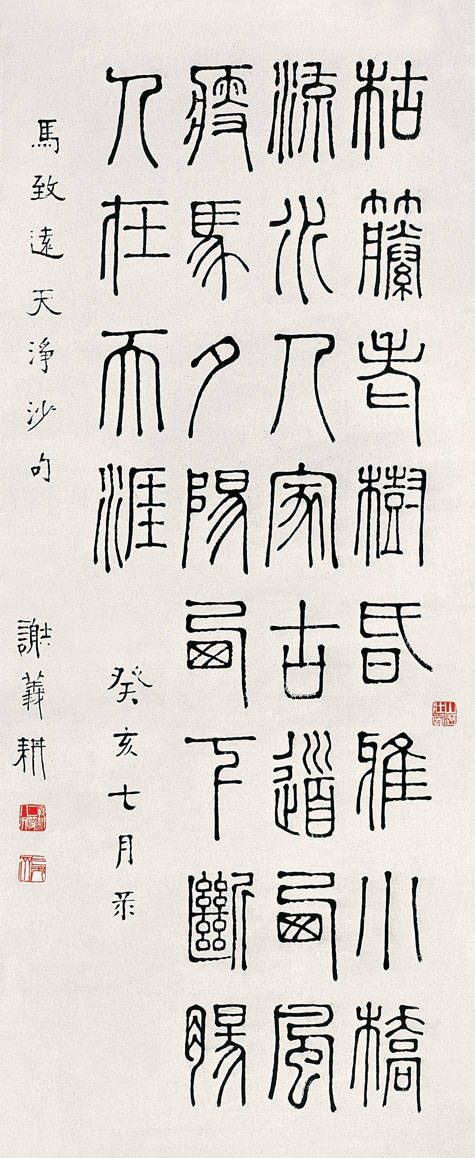 枯籐老樹昏雅小橋
流水人家古道西風
瘦馬夕陽西下斷腸
人在天涯
癸亥七月
馬致遠天淨沙句
謝義耕